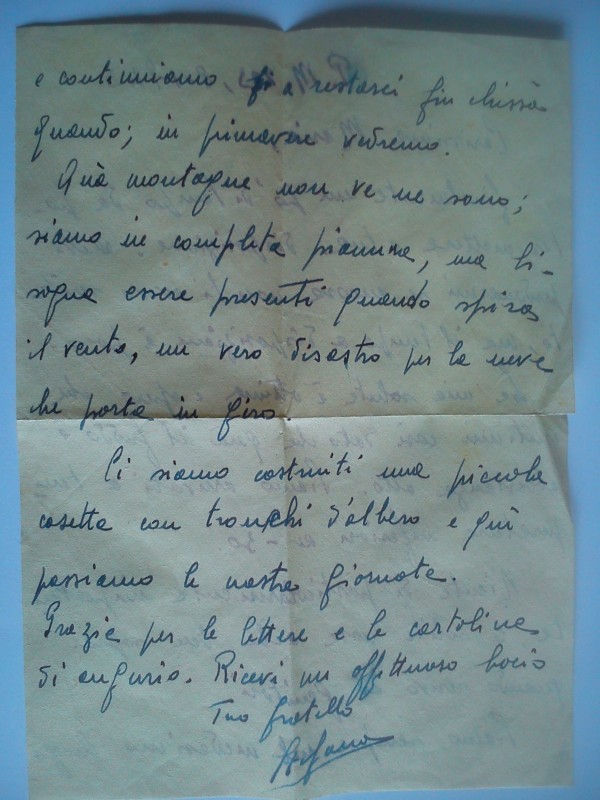 e continuiamo a restarci fin chissà
quando; in primavera vedremo.
Quà montagne non ve ne sono;
siamo in completa pianura, ma bi-
sogna essere presenti quando spira
il vento, un vero disastro per la neve
che porta in giro.
Ci siamo costruiti una piccola
casetta con tronchi d'albero e quì
passiamo le nostre giornate.
Grazie per le lettere e le cartoline
di augurio. Ricevi un affettuoso bacio
Tuo fratello
Stefano